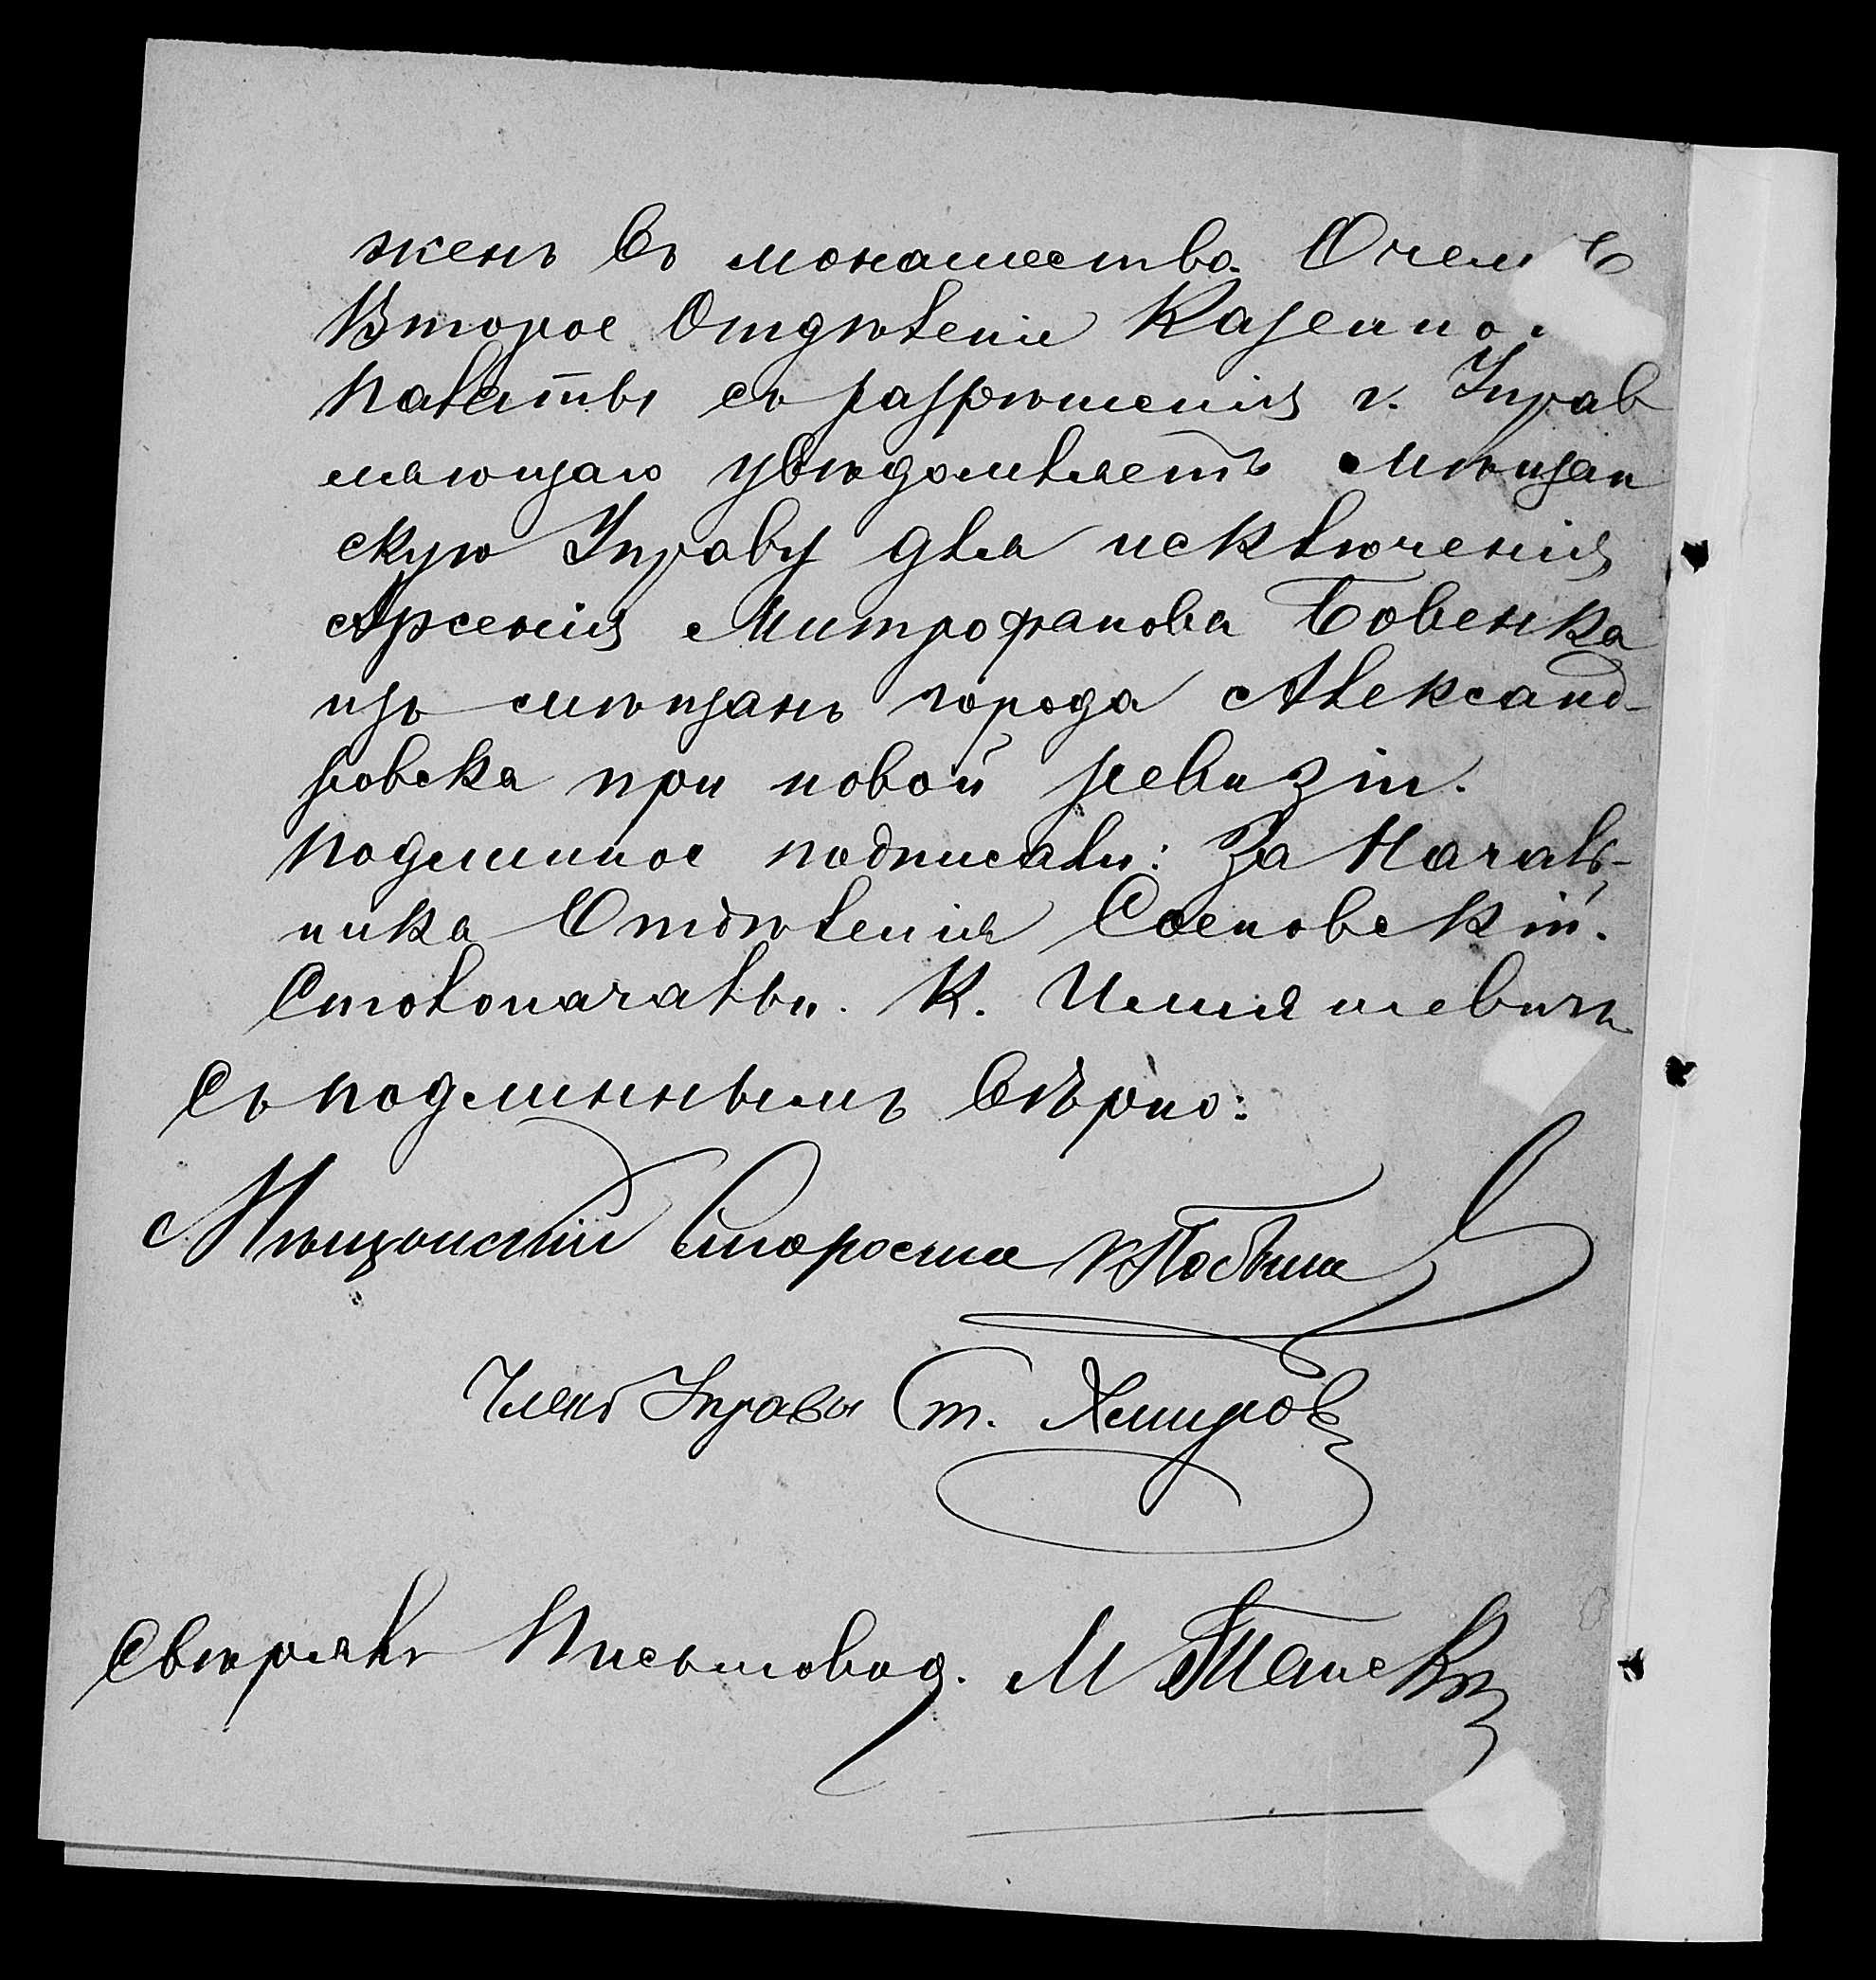 женъ въ монашество. Очемъ
Второе Отдѣленіе Казенно
Палаты съ разрѣшенія г. Управ
ляющаго увѣдомляетъ Мѣщан
скую Управу для исключенія
Арсенія Митрофанова Бовенка
изъ мѣщанъ города Александ-
ровска при новой ревизіи.
Подлинное подписали: За Началь-
ника Отдѣленія Сосновскій.
Столоначальн. К.
Съ подлиннымъ вѣрно:
Мѣщанскій Староста
Членъ Управы Ст. Хмыров
Свѣрялъ Письмовод. М